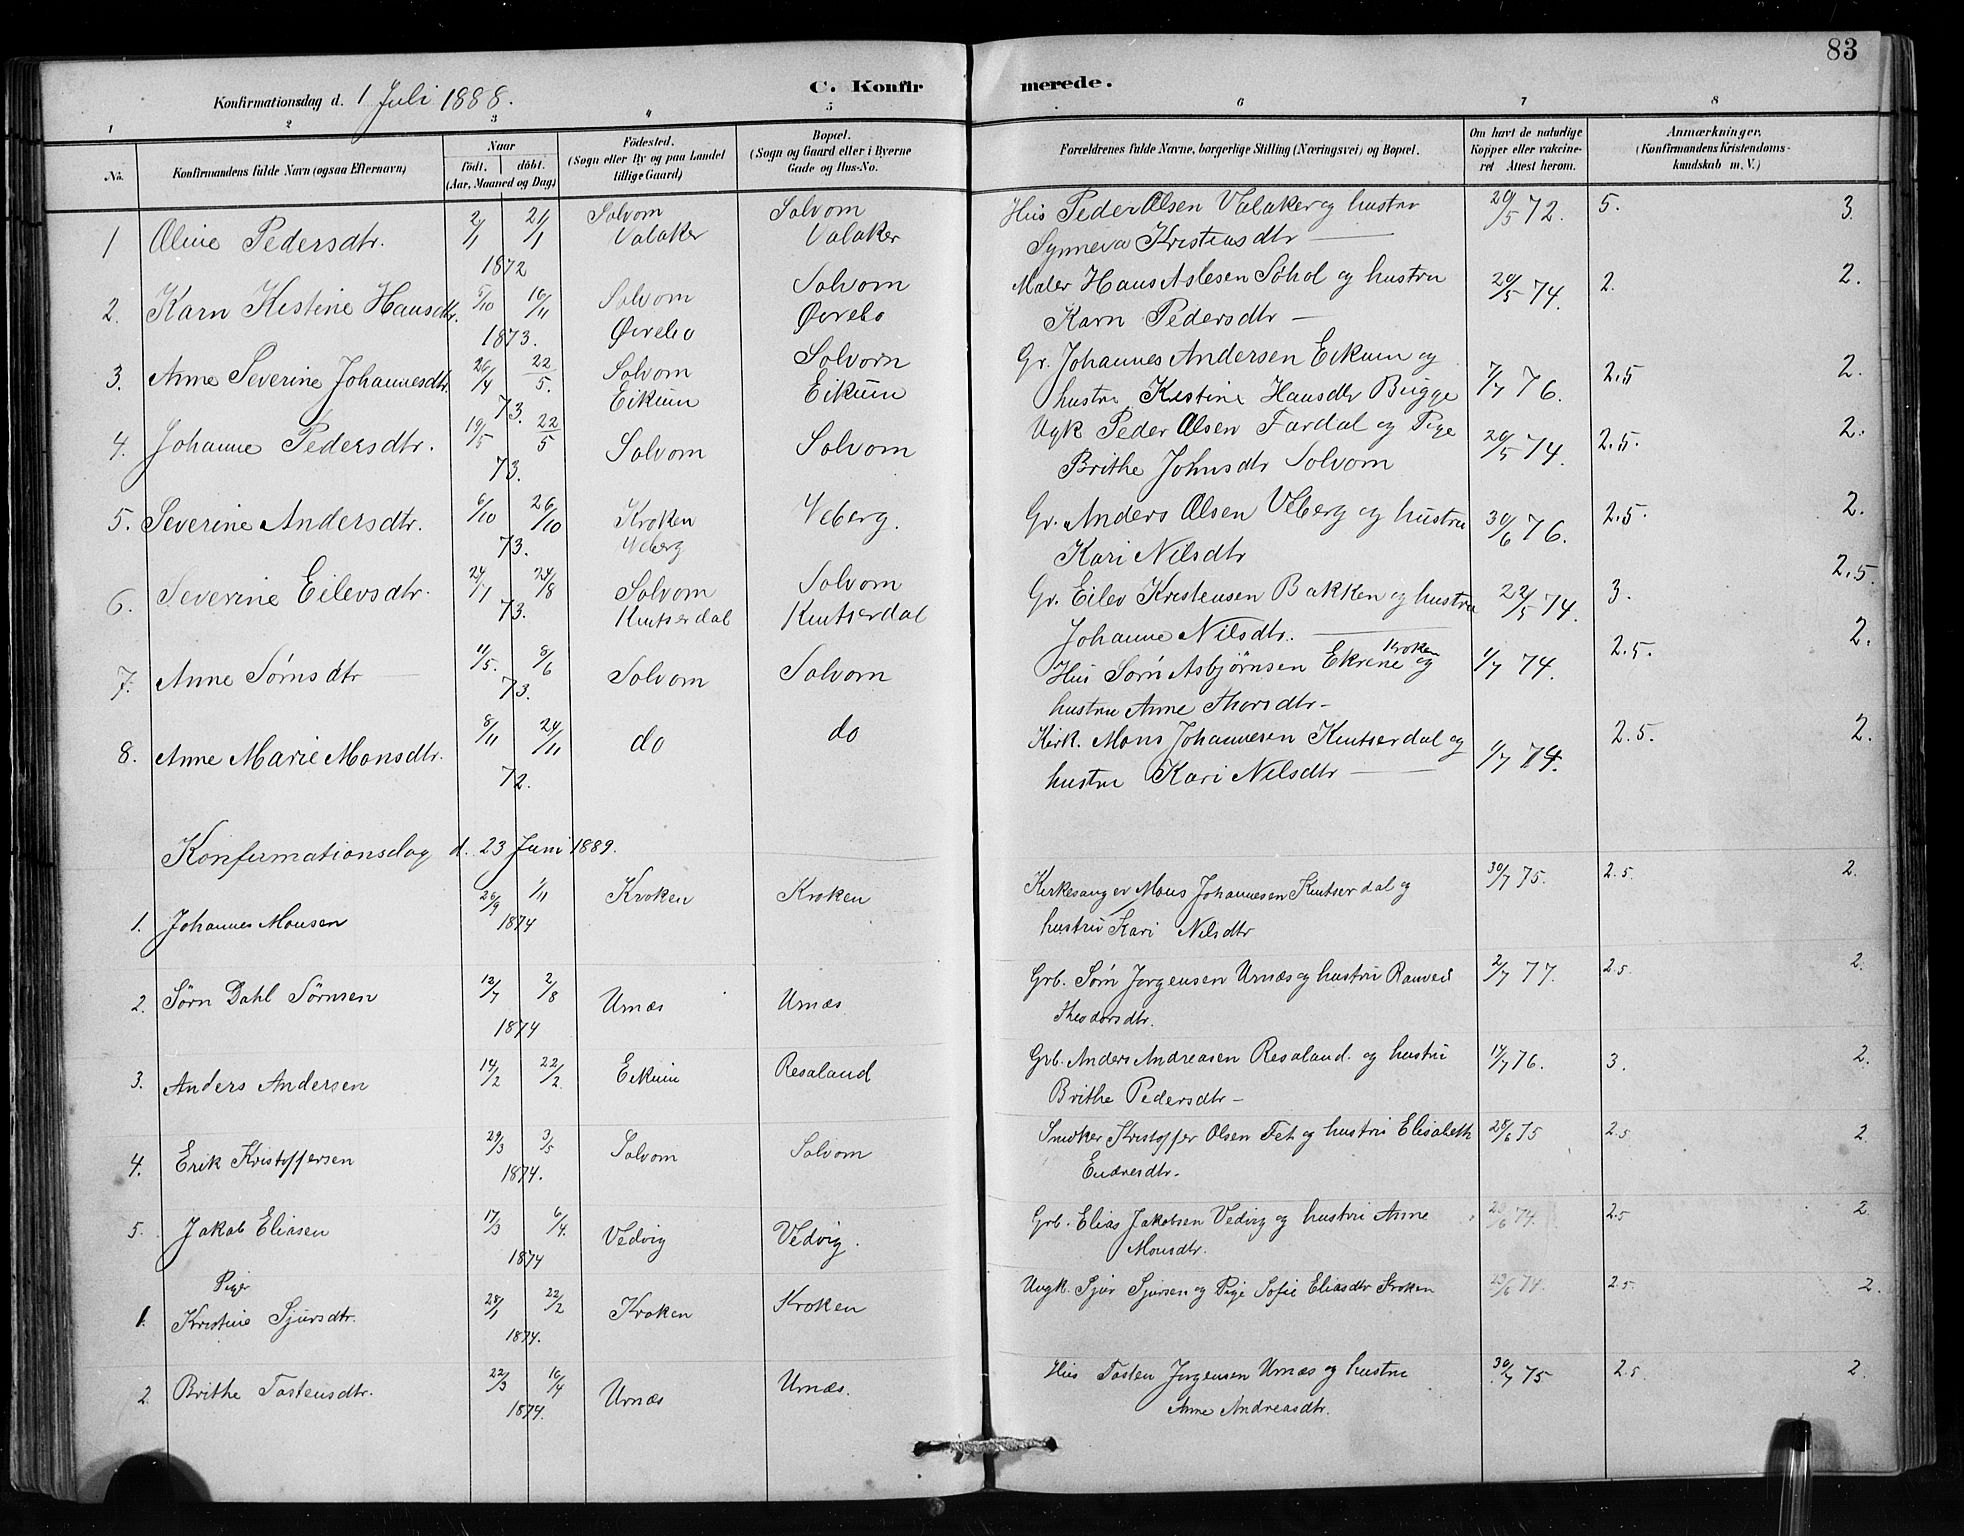 83
C. Konfirmerede.
Konfirmationsdag d. 1 Juli 1888.
1 2 3 4 5 6 7 8
No. Konfirmandens fulde Navn (ogsaa Efternavn)
Naar født. døbt. (Aar, Maaned og Dag)
Födested. (Sogn eller By og paa Landet tillige Gaard)
Bopæl. (Sogn og Gaard eller i Byerne Gade og Hus-No.
Forældrenes fulde Navne, borgerlige Stilling (Næringsvei) og Bopæl.
Om havt de naturlige Kopper eller vaccineret Attest herom.
Anmærkninger. (Konfirmandens Kristendomskundskab m. V.)
1 Oline Pedersdtr. 2/1 21/1 1872 Solvorn Valaker Solvorn Valaker Hus Peder Olsen Valaker og hustru Synneva Kristensdtr 29/5 72. 5. 3.
2. Karn Kistine Hansdtr. 5/10 16/11 1873. Solvorn Øvrebo Solvorn Øvrebo Maler Hans Aslesen Søhol og hustru Karn Pedersdtr 29/5 74. 2. 2.
3. Anne Severine Johannesdtr. 26/4 22/5. 73. Solvorn Eikum Solvorn Eikum Gr. Johannes Andersen Eikum og hustru Kistine Hansdtr Bugge 7/7 76. 2.5 2.
4. Johanne Pedersdtr. 19/5 22/5 73. Solvorn Solvorn Ugk Peder Olsen Fardal og Pige Brithe Johnsdtr Solvorn 29/5 74. 2.5. 2.
5. Severine Andersdtr. 6/10 26/10 73. Kroken Veberg Veberg. Gr. Anders Olsen Veberg og hustru Kari Nilsdtr 30/6 76. 2.5. 2.
6. Severine Eilevsdtr. 24/1 24/8 73. Solvorn Knutserdal Solvorn Knutserdal Gr. Eilev Kristensen Bakken og hustru Johanne Nilsdtr. 22/5 74. 3. 2.5.
7. Anne Sørnsdtr 11/5. 8/6 73. Solvorn Solvorn Hus Sørn Asbjørnsen Ekrene Kroken og hustru Anne Thorsdtr 1/7 74. 2.5. 2.
8. Anne Marie Monsdtr. 8/11 24/11 72. do do Kirk. Mons Johannesen Knutserdal og hustru Kari Nilsdtr 1/7 74. 2.5. 2.
Konfirmationsdag d. 23 Juni 1889.
1. Johannes Monsen 26/9 1/11 1874 Kroken Kroken Kirkesanger Mons Johannesen Knutserdal og hustru Kari Nilsdtr 30/7 75. 2.5. 2.
2. Sørn Dahl Sørnsen 12/7 2/8 1874 Urnæs Urnæs. Grb. Sørn Jørgensen Urnæs og hustru Ranveis Theodorsdtr. 2/7 77. 2.5. 2.
3. Anders Andersen 14/2 22/2. Eikum Resaland Grb. Anders Andreasen Resaland. og hustru Brithe Pedersdtr 14/7 76. 3. 2.
4. Erik Kristoffersen 29/3 3/5 1874. Solvorn Solvorn Snidker Kristoffer Olsen Fet og hustru Elisabeth Endresdtr. 28/6 75 2.5 2.
5. Jakob Eliasen 17/3 6/4. 1874 Vedvig Vedvig. Grb. Elias Jakobsen Vedvig og hustru Anne Monsdtr. 74. 2.5 2.
Piger
1. Kristine Sjursdtr. 28/1 22/2 1874. Kroken Kroken Ungk. Sjur Sjursen og Pige Sofie Eliasdtr Kroken 74. 2.5. 2.
2. Brithe Tostensdtr. 22/3 16/4 1874. Urnæs Urnæs. Hus Tosten Jørgensen Urnæs og hustru Anne Andreasdtr. 30/7 75 2.5. 2.